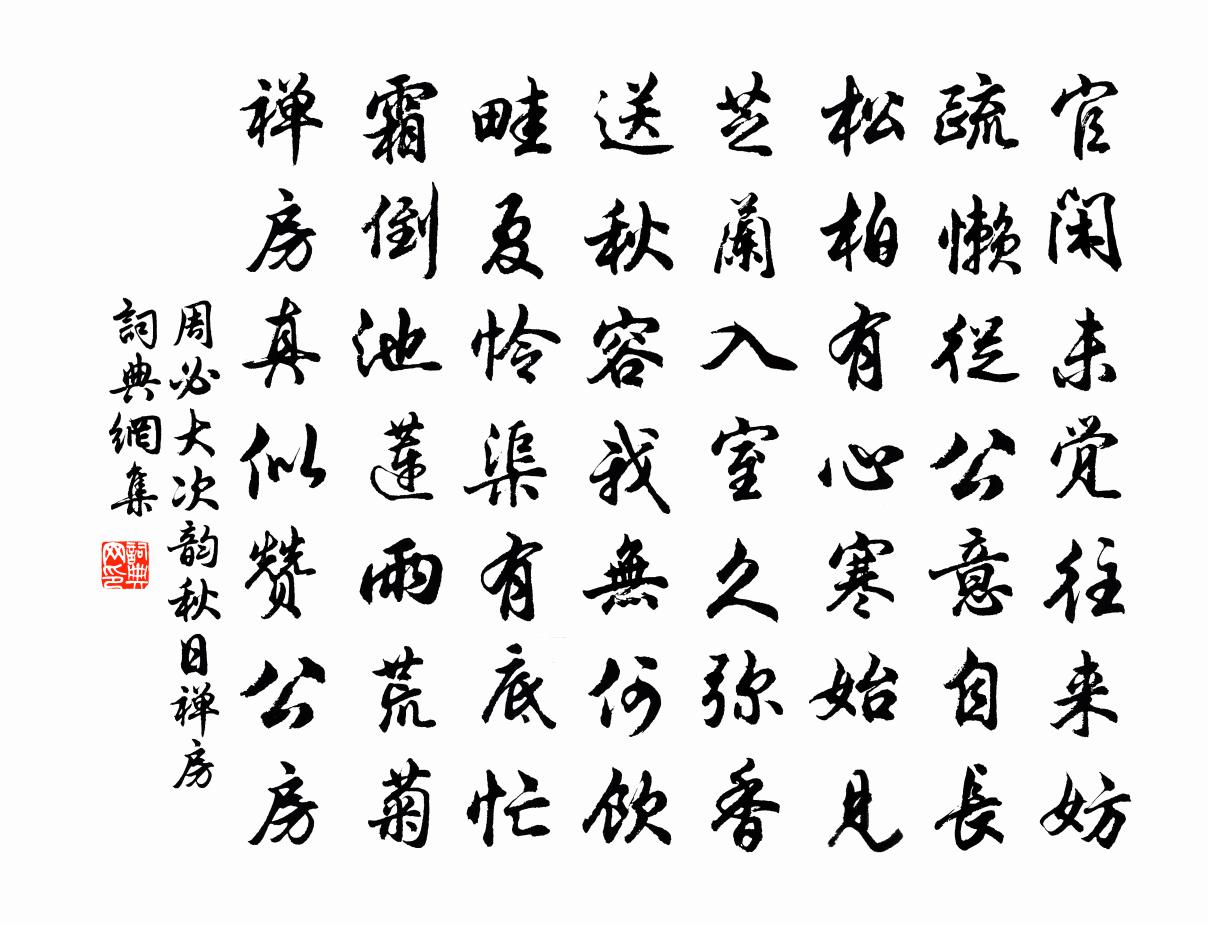 官闲未觉往来妨
疏懒從公意自長
松柏有心寒始見
芝蘭入室久弥香
送秋容我無何飲
畦夏怜渠有底忙
霜倒池蓮雨荒菊
禅房真似赞公房
周必大次韵秋日禅房
詞典網集
詞典网印